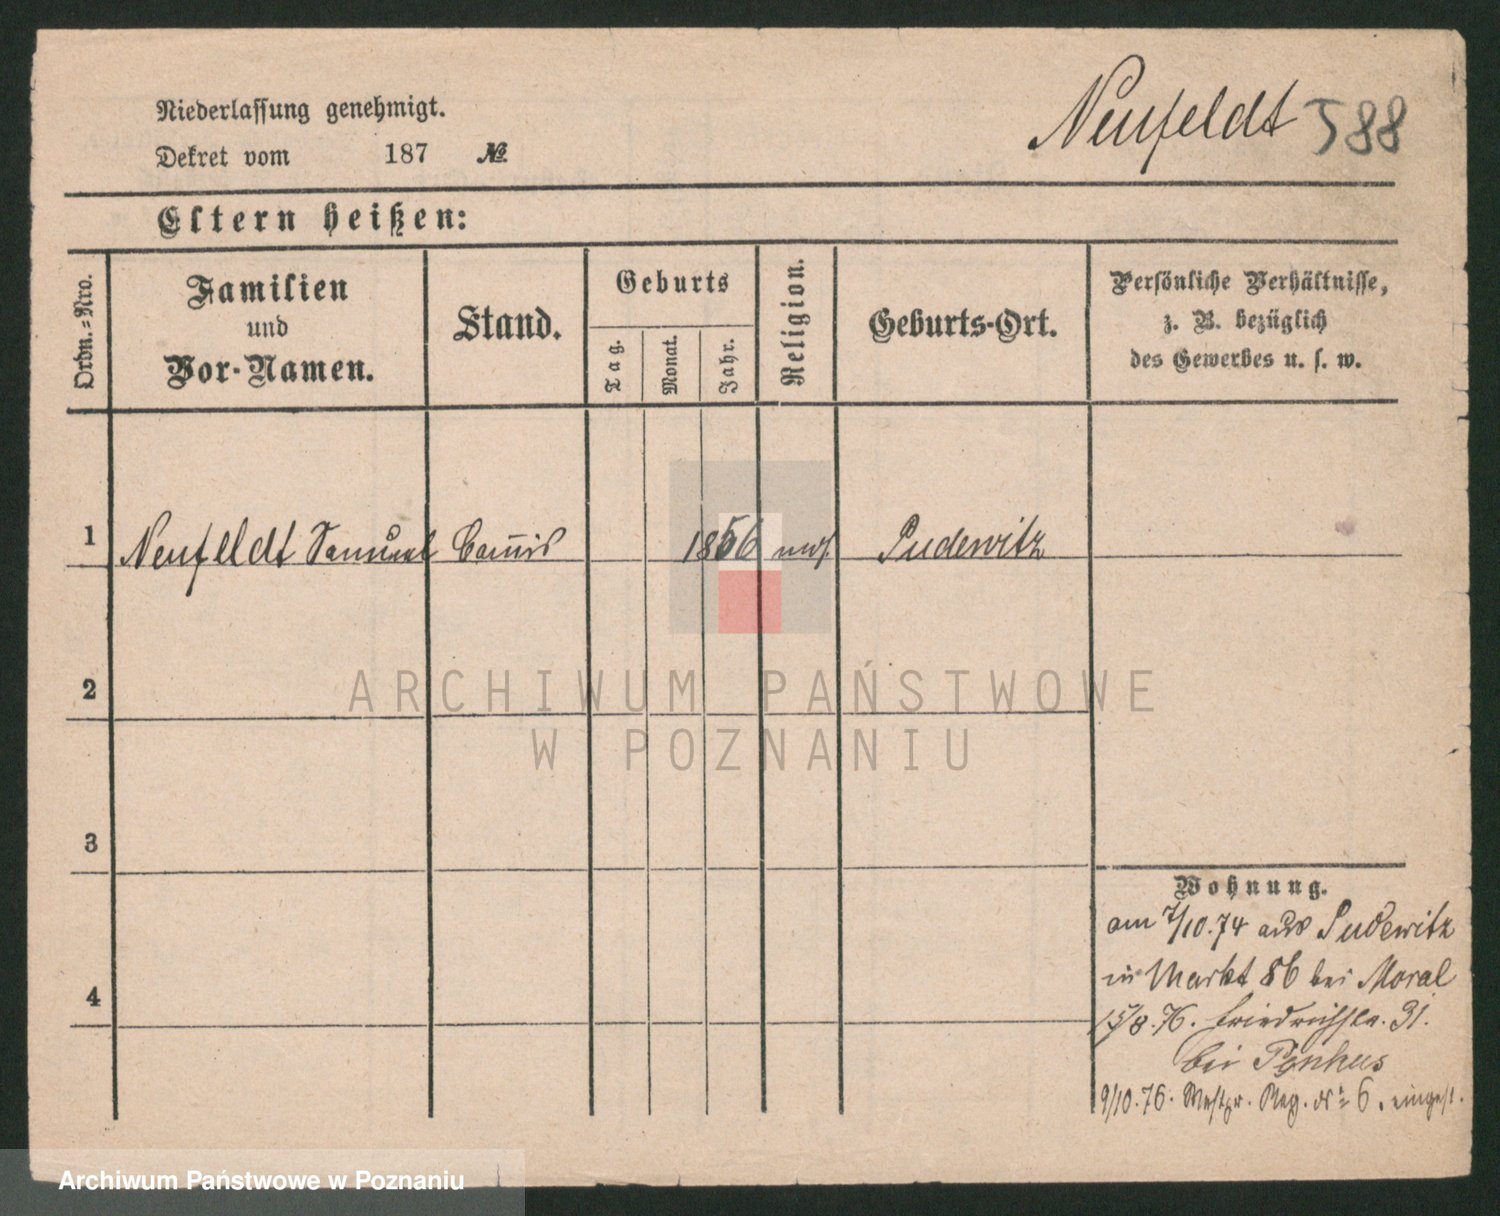 Niederlassung genehmigt.
Neufeldt 588
Dekret vom 187 №
Eltern heißen:
Ordn.=Nro.
Familien
und
Vor-Namen.
Stand.
Geburts
Tag.
Monat.
Jahr.
Religion.
Geburts-Ort.
Persönliche Verhältnisse,
z. B. bezüglich
des Gewerbes u. s. w.
1 Neufeldt Samuel Com̅is 1856 mos. Pudewitz
2
3
4
Wohnung.
am 7/10.74 aus Pudewitz
in Markt 86 bei Moral
15/8.76. Friedrichstr. 31.
bei Pinkus
9/10.76. Westpr. Reg. № 6. eingest.
ARCHIWUM PAŃSTWOWE
W POZNANIU
Archiwum Państwowe w Poznaniu